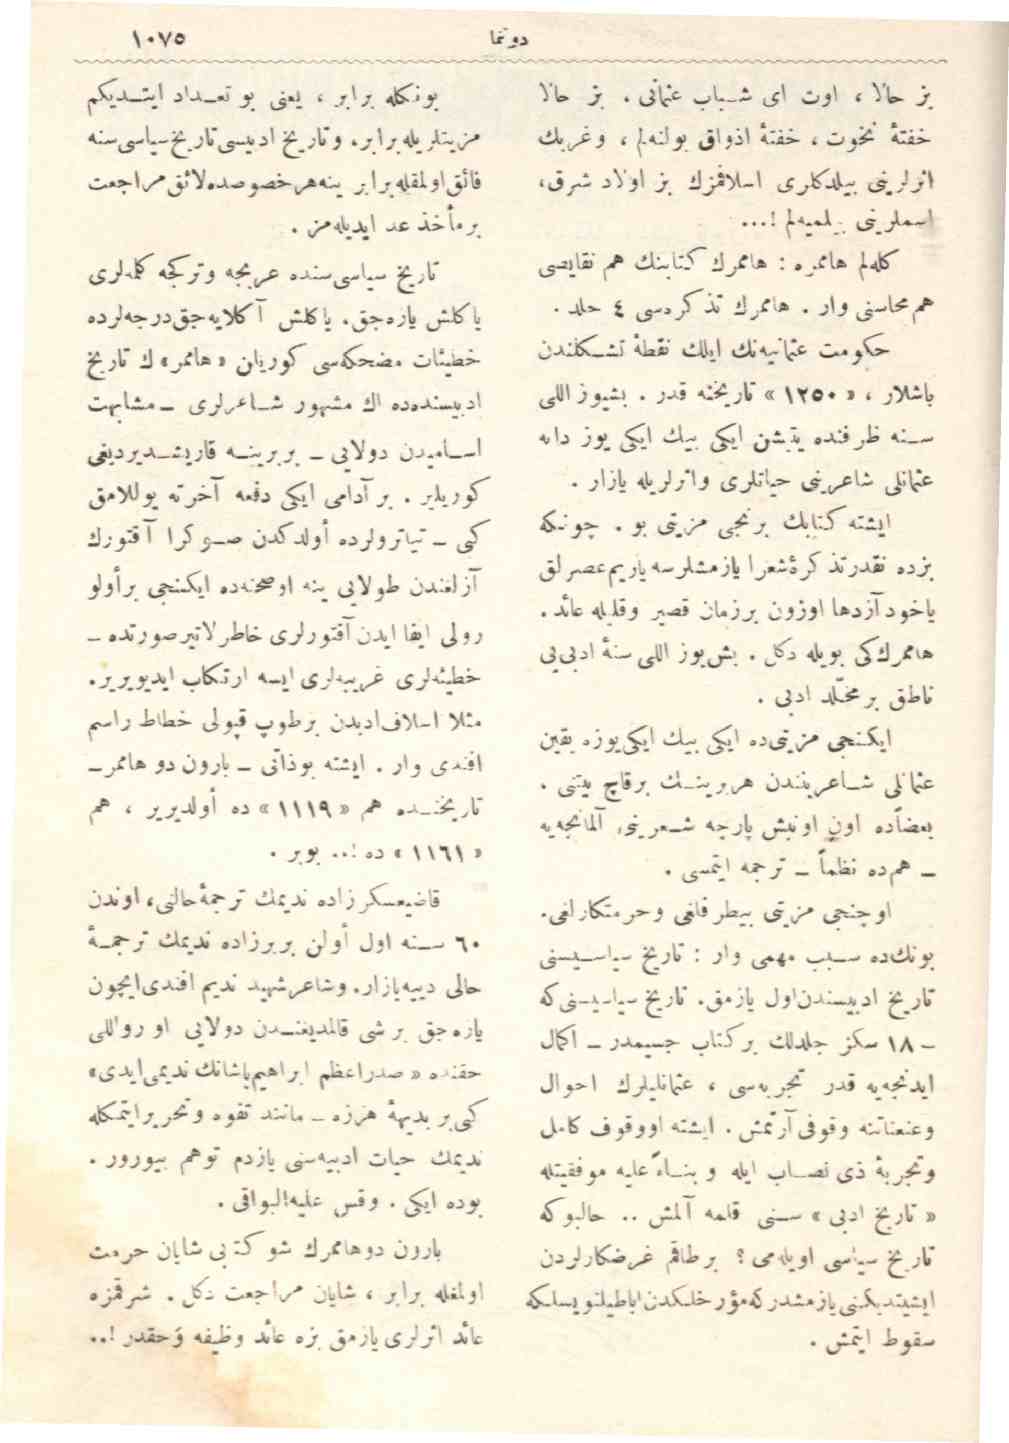 دوننما
١٠٧٥
بز حالا ، اوت ای شباب عثمانی . بز حالا
خفتهٔ نخوت ، خفتهٔ اذواق بولنه‌لم ، و غربك
اثرلرینی بیلدكلری اسلافمزك بز اولاد شرق،
اسملرینی بیلمیه‌لم !...
كله‌لم هاممره : هاممرك كتابنك هم نقایصی
هم محاسنی وار . هاممرك تذكره‌سی ٤ جلد .
حكومت عثمانیه‌نك ایلك نقطهٔ تشكلندن
باشلار ، « ١٢٥٠ » تاریخنه قدر . بشیوز اللی
سنه ظرفنده یتیشن ایكی بیك ایكی یوز دانه
عثمانلی شاعرینی حیاتلری و اثرلریله یازار .
ایشته كتابك برنجی مزیتی بو . چونكه
بزده نقدر تذكرهٔ شعرا یازمشلرسه یاریم عصرلق
یاخود آزدها اوزون برزمان قصیر و قلیله عائد.
هاممرك‌كی بویله دكل . بش یوز اللی سنهٔ ادبی‌یی
ناطق بر مخلّد ادبی .
ایكنجی مزیتی‌ده ایكی بیك ایكی یوزه یقین
عثمانلی شاعریندن هربرینك برقاچ بیتنی .
بعضاًده اون اونبش پارچه شعرینی، آلمانجه‌یه
ـ هم‌ده نظماً ـ ترجمه ایتمسی .
اوچنجی مزیتی بیطرفلغی و حرمتكارلغی.
بونك‌ده سبب مهمی وار : تاریخ سیاسیسنی
تاریخ ادبیسندن اول یازمق. تاریخ سیاسیسنی‌كه
ـ ١٨ سكز جلدلك بر كتاب جسیمدر ـ اكمال
ایدنجه‌یه قدر تجربه‌سی ، عثمانلیلرك احوال
و عنعناتنه وقوفی آرتمش . ایشته اووقوف كامل
و تجربهٔ ذی نصاب ایله و بناءً علیه موفقیتله
« تاریخ ادبی » سنی قلمه آلمش .. حالبوكه
تاریخ سیاسی اویله‌می ؟ برطاقم غرضكارلردن
ایشیتدیكنی یازمشدركه مؤرخلكدن اباطیلنویسلكه
سقوط ایتمش .
بونكله برابر ، یعنی بو تعداد ایتدیكم
مزیتلریله برابر. و تاریخ ادبیسی تاریخ سیاسی‌سنه
فائق اولمقله برابر ینه هر خصوصده لائق مراجعت
برمأخذ عد ایدیله‌مز .
تاریخ سیاسی‌سنده عربجه و تركجه كلمه‌لری
یاكلش یازه‌جق. یاكلش آكلایه‌جق درجه‌لرده
خطیئات مضحكه‌سی كوریلن « هاممر » ك تاریخ
ادبیسنده‌ده اك مشهور شاعرلری ـ مشابهت
اسامیدن دولایی ـ بربرینه قاریشدیردیغی
كوریلیر . بر آدامی ایكی دفعه آخرته یوللامق
كبی ـ تیاترولرده أولدكدن صوكرا آقتورك
آزلغندن طولایی ینه او صحنه‌ده ایكنجی برأولو
رولی ایفا ایدن آقتورلری خاطرلاتیر صورتده ـ
خطیئه‌لری غریبه‌لری ایسه ارتكاب ایدیویریر.
مثلا اسلاف ادبدن برطوپ قپولی خطاط راسم
افندی وار . ایشته بوذاتی ـ بارون دو هاممر ـ
تاریخنده هم « ١١١٩ » ده أولدیریر ، هم
« ١١٦١ » ده !.. بوبر .
قاضیعسكر زاده ندیمك ترجمهٔ حالنی، اوندن
٦٠ سنه اول أولن بربرزاده ندیمك ترجمهٔ
حالی دییه یازار. و شاعر شهید ندیم افندی ایچون
یازه‌جق بر شی قالمدیغندن دولایی او زواللی
حقنده « صدراعظم ابراهیم پاشانك ندیمی ایدی »
كبی بر بدیهٔ هرزه ـ مانند تفوه و تحریر ایتمكله
ندیمك حیات ادبیه‌سنی یازدم توهم بیورور .
بوده ایكی . وقس علیه البواقی .
بارون دوهاممرك شو كتابی شایان حرمت
اولمغله برابر ، شایان مراجعت دكل . شرقمزه
عائد اثرلری یازمق بزه عائد وظیفه و حقدر !..